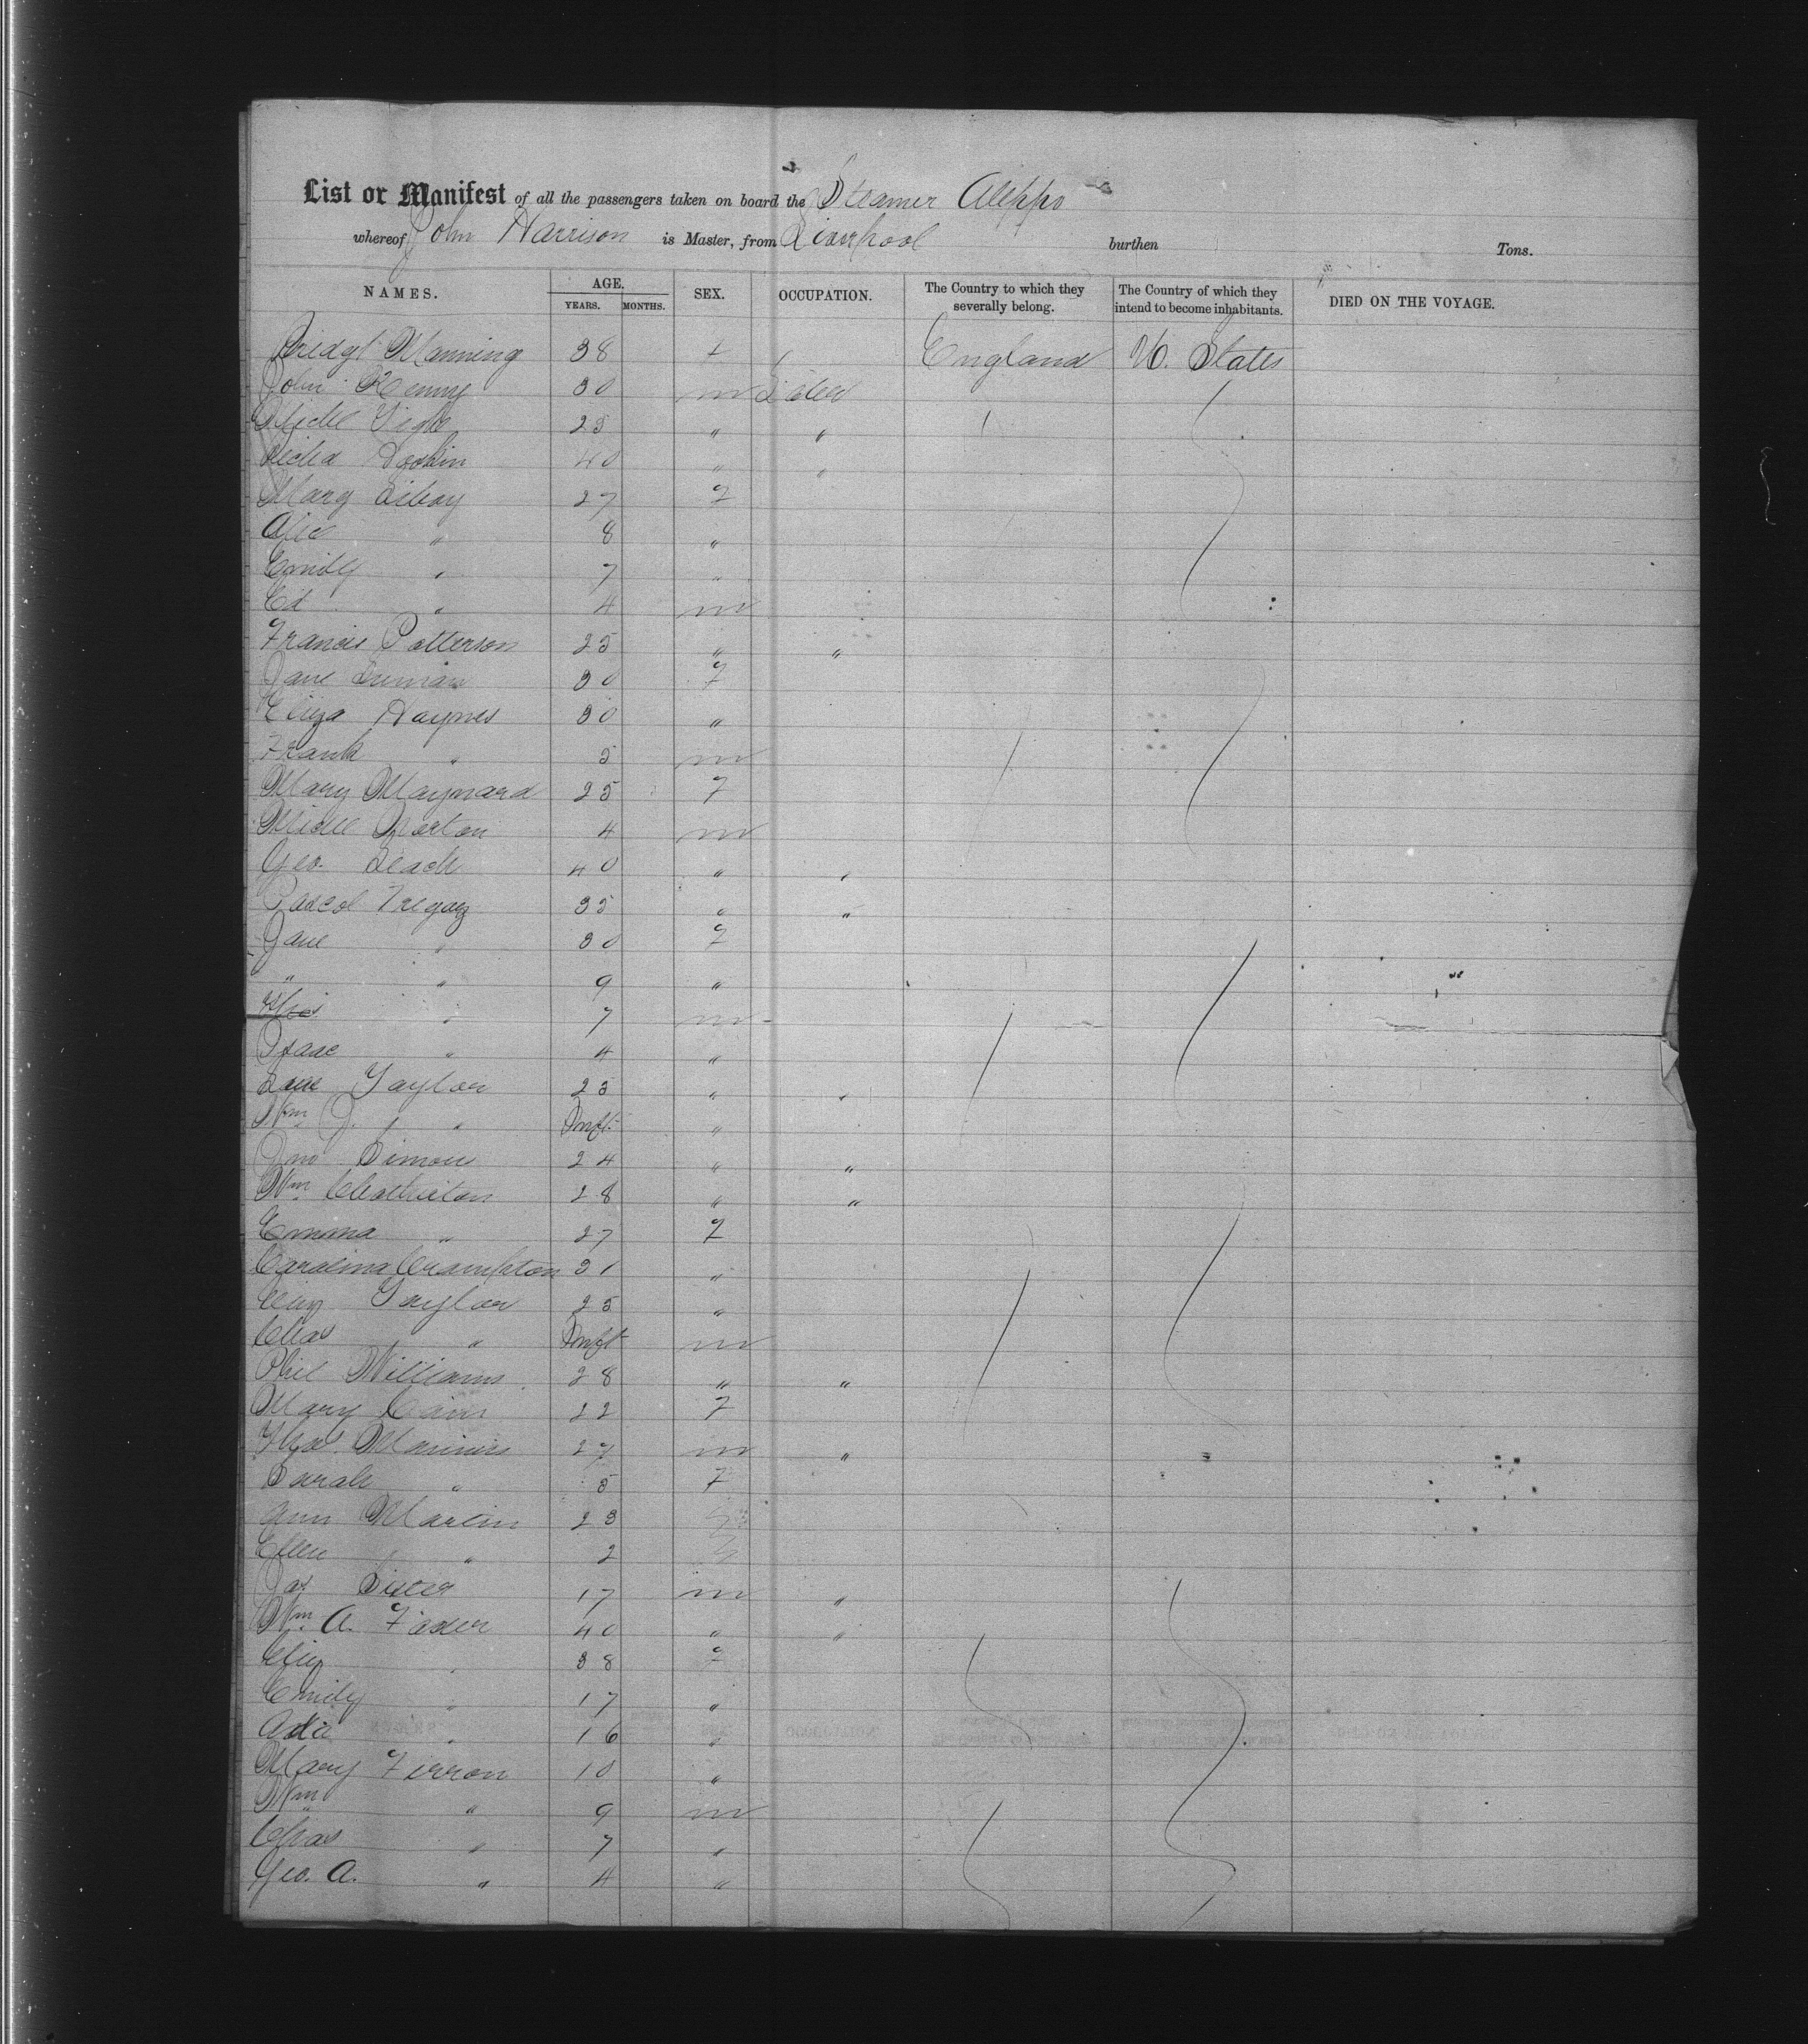 List or Manifest of all the passengers taken on board the Steamer Aleppo
whereof John Harrison is Master, from Liverpool burthen Tons.
NAMES. AGE. YEARS. MONTHS. SEX. OCCUPATION. The Country to which they severally belong. The Country of which they intend to become inhabitants. DIED ON THE VOYAGE.
Bridgt Manning 38 England U. States
John Kenny 30 m Labor
25 " "
40 " "
Mary 27 f
Alice " 8 "
Emily " 7 "
Ed " 4 m
Francis Patterson 25 " "
Jane 30 f
Eliza Haynes 30 "
Frank " 5 m
Mary Maynard 25 f
Norton 4 m
Geo. Leach 40 " "
Pascol Tregaz 35 " "
Jane " 30 f
" " 9 "
" 7 m
Isaac " 4 "
Taylor 25 " "
Wm J. " Inft "
Jno Simon 24 " "
Wm 28 " "
Emma " 27 f
Carolina Crampton 31 "
Eliz Taylor 25 "
Chas " Inft m
Phil Williams 28 " "
Mary 22 f
Thos 27 m "
Sarah " 5 f
Ann Martin 23
Ellen " 2
Jas 17 m "
Wm. A. 40 " "
Eliz " 38 f
Emily " 17 "
Ada " 16 "
Mary Firron 10 "
Wm " 9 m
Chas " 7 "
Geo. A. " 4 "